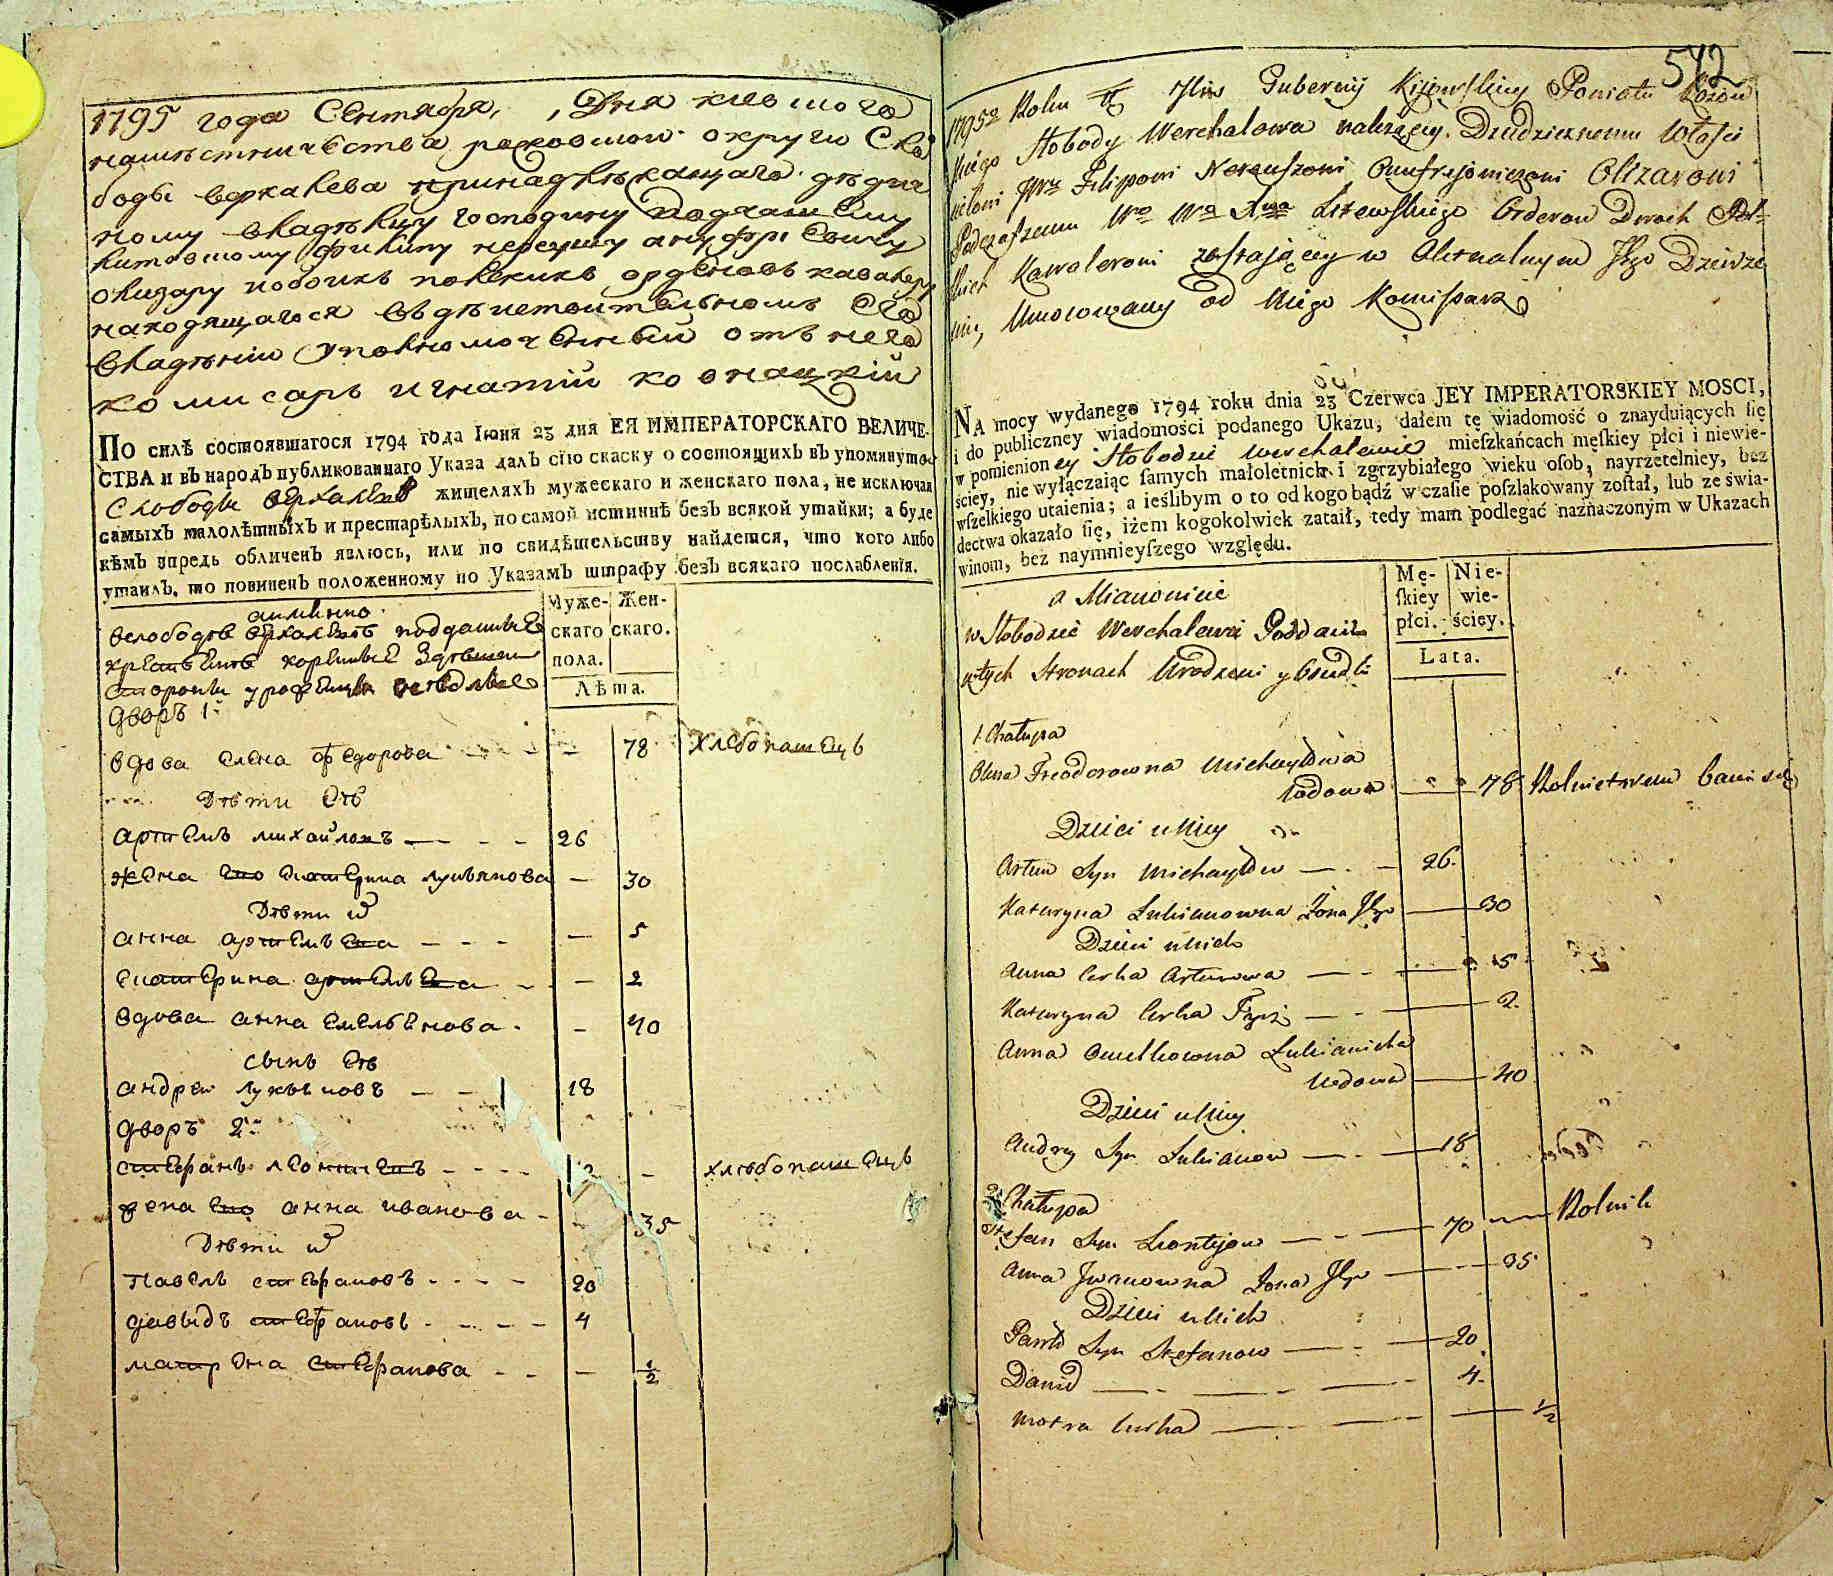 542
1795 года Сентября, Дня киевского
наместничества раховской округи Сло
боды верхалева принадлежащаго дедич
ному владелцу Господину Подчашему
литовскому филипу нереушу ануфріевичу
олизару полских орденовъ кавалеру
находящагося вдействительномъ его
владѣніи уполномоченный отъ него
комисаръ игнатій ковнацкій
По силѣ состоявшагося 1794 года Іюня 23 дня ЕЯ ИМПЕРАТОРСКАГО ВЕЛИЧЕ-
СТВА и въ народъ публикованнаго Указа далъ сію скаску о состоящихъ въ упомянутой
Слободы верхалевъ жителяхъ мужескаго и женскаго пола, не исключая
самыхъ малолѣтныхъ и престарѣлыхъ, по самой истиннѣ безъ всякой утайки; а буде
кѣмъ впредь обличенъ явлюсь, или по свидѣтельству найдется, что кого либо
утаилъ, то повиненъ положенному по Указамъ штрафу безъ всякаго послабленія.
аимянно
вслободѣ верхалевъ подданые
крестьяне кореные здѣшней
стороны уроженцы
Муже- Жен-
скаго скаго.
пола.
Лѣта.
дворъ 1й
вдова елена федорова — 78 хлебопашецъ
Дѣти Еѣ
артемъ михайловъ — 26
жена его екатерина лукьянова — 30
Дѣти ихъ
анна артемьева — 5
екатерина артемьева — 2
вдова анна емельянова — 40
сынъ еѣ
андрей лукьяновъ — 18
дворъ 2й
стефанъ леонтіевъ — хлѣбопашецъ
жена его анна иванова — 35
Дѣти ихъ
Павелъ стефановъ — 20
давыдъ стефановъ — 4
матрена стефанова — 1/2
1795o Roku 7bris Gubernij Kijowskiey Powiatu
skiego Słobody Werchalowa należącey Dziedzicznemu Włości
cielowi JWu Filipowi Nereuszowi Onufryjowiczowi Olizarowi
Podczaszemu Wo Wo Xwa Litewskiego Orderow Dwoch Pol-
skich Kawalerowi zostającey w Aktualnym Jego Dzierże
niu, Umocowany od Niego Komisarz
NA mocy wydanego 1794 roku dnia 23 Czerwca JEY IMPERATORSKIEY MOSCI,
i do publiczney wiadomości podanego Ukazu, dałem tę wiadomość o znayduiących ſię
w pomienioney Słobodzie Werchalewie mieſzkańcach męſkiey płci i niewie-
ściey, nie wyłączaiąc ſamych małoletnich i zgrzybiałego wieku oſob, nayrzetelniey, bez
wſzelkiego utaienia; a ieślibym o to od kogo bądź w czaſie poſzlakowany zoſtał, lub ze świa-
dectwa okazało ſię, iżem kogokolwiek zataił, tedy mam podlegać naznaczonym w Ukazach
winom, bez naymnieyſzego względu.
a Mianowicie
w Słobodzie Werchalewi Poddani
w tych Stronach Urodzeni y Osiedli
Mę- Nie-
ſkiey wie-
płci. ściey.
Lata.
1 Chałupa
Olena Freodorowna Michayłowa
Wdowa — 78 Rolnictwem bawi się
Dzieci u Niey
Artem Syn Michayłow — 26.
Kataryna Lukianowna Żona Jego — 30
Dzieci u Nich
Anna Corka Artemowa — 5
Kataryna Corka Tegoż — 2
Anna Omelkowna Lukianicha
Wdowa — 40
Dzieci u Niey
Andrey Syn Lukianow — 18
2 Chałupa
Stefan Syn Leontijow — 70 — Rolnik
Anna Iwanowna Żona Jego — 35
Dzieci u Nich
Paweł Syn Stefanow — 20
Dawid — 4.
Motra Corka — 1/2